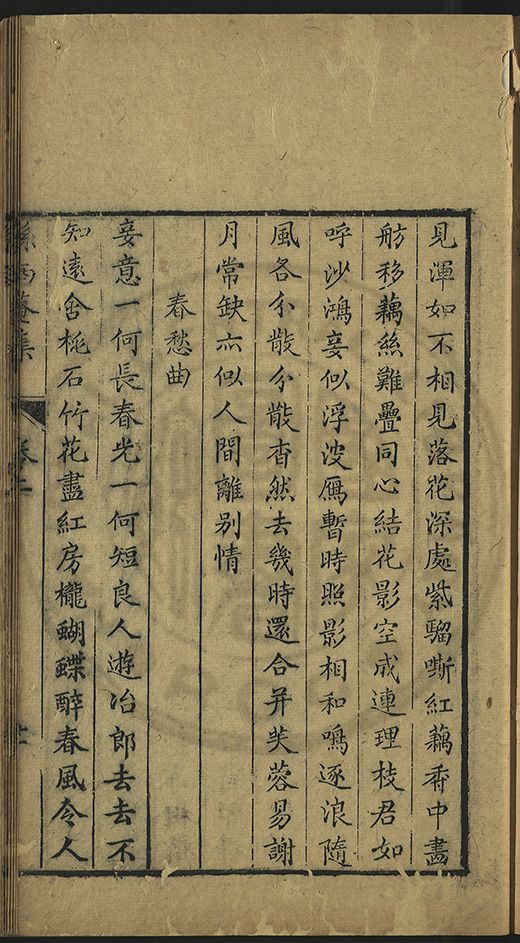 見渾如不相見落花深處紫騮嘶紅藕香中畵
舫移藕絲難疊同心結花影空成連理枝君如
呼沙鴻妾似浮波鴈暫時照影相和鳴逐浪隨
風各分散分散杳然去幾時還合并芙蓉易謝
月常缺亦似人間離别情
春愁曲
妾意一何長春光一何短良人遊冶郎去去不
知遠舍桃石竹花盡紅房櫳蝴蝶醉春風令人
集
卷二